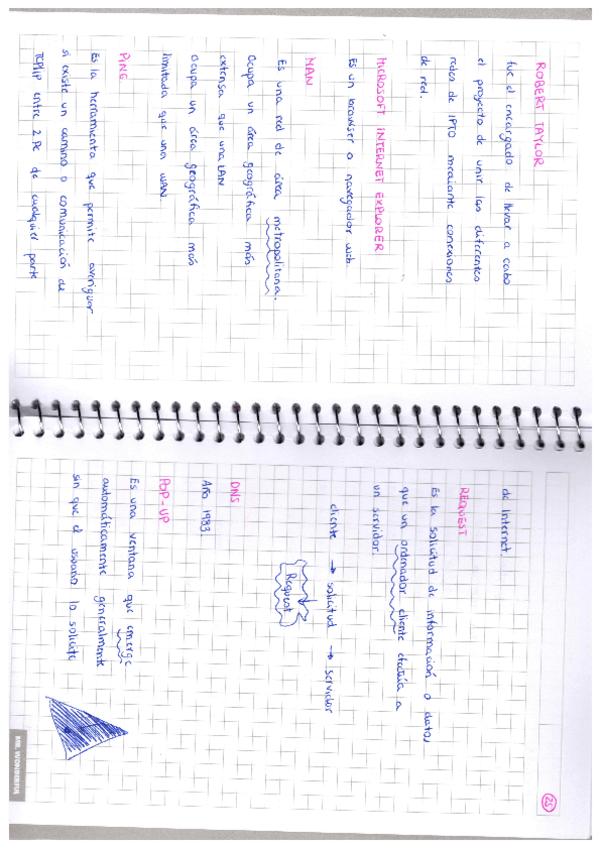 ROBERT TAYLOR
fue el encargado de llevar a cabo
el proyecto de unir las diferentes
redes de IPTO mediante conexiones
de red.
MICROSOFT INTERNET EXPLORER
Es un browser o navegador web.
MAN
Es una red de área metropolitana.
Ocupa un área geográfica más
extensa que una LAN
Ocupa un área geográfica más
limitada que una WAN.
PING
Es la herramienta que permite averiguar
si existe un camino o comunicación de
TCP/IP entre 2 PC de cualquier parte
25
de Internet.
REQUEST
Es la solicitud de información o datos
que un ordenador cliente efectúa a
un servidor.
cliente → solicitud → servidor
Request
DNS
Año 1983.
POP-UP
Es una ventana que emerge
automáticamente generalmente
sin que el usuario lo solicite
MR. WONDERFUL